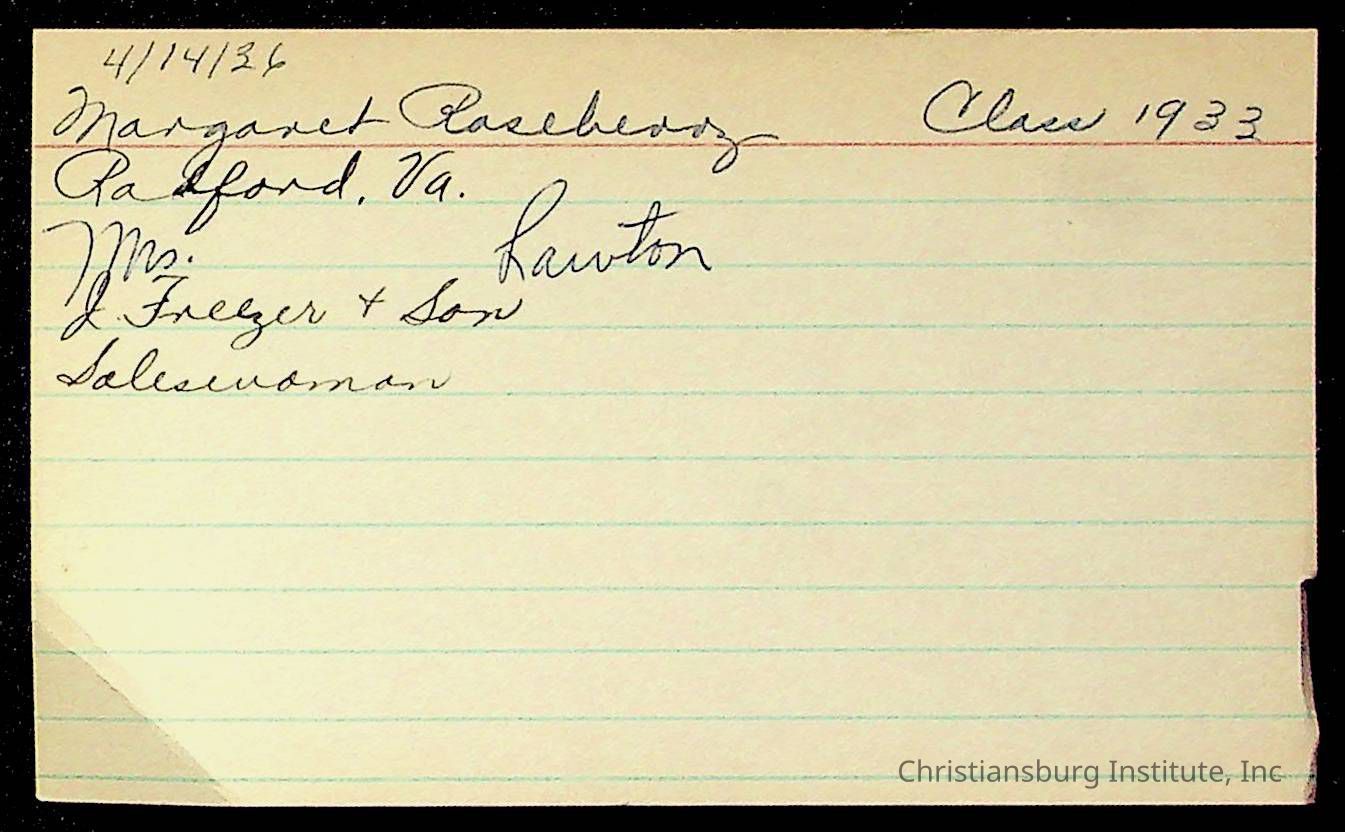 4/14/36
Margaret Roseberry Class 1933
Radford, Va.
Mrs. Lawton
J. Freezer + Son
Saleswoman
Christiansburg Institute, Inc